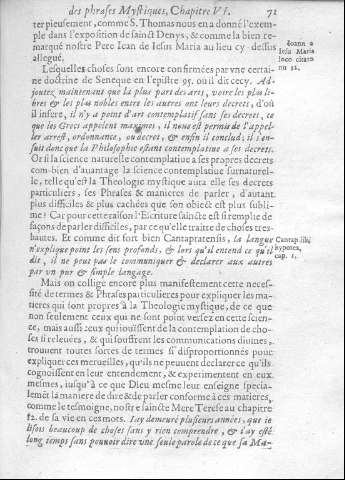 des phrases Mystiques, Chapitre VI. 71
terpieusement, comme S. Thomas nous en a donné l'exem-
ple dans l'exposition de sainct Denys, & comme la bien re-
marqué nostre Pere Iean de Iesus Maria au lieu cy-dessus
allegué.
Ioann a
Iesu Maria
loco citato
nu 12.
Lesquelles choses sont encore confirmées par vne certai-
ne doctrine de Seneque en l'epistre 95. ou il dit cecy. Ad-
joutez maintenant que la plus part des arts, voire les plus li-
bres & les plus nobles entre les autres ont leurs decrets, d'où
il infere, il n'y a point d'art contemplatif sans ses decrets, ce
que les Grecs appellent il nous est permis de l'appel-
ler arrest, ordonnance, ou decret, & enfin il conclud; il s'en-
suit donc que la Philosophie estant contemplatiue a ses decrets.
Or si la science naturelle contemplatiue a ses propres decrets
com-bien d'auantage la science contemplatiue surnaturel-
le, telle qu'est la Theologie mystique aura elle ses decrets
particuliers, ses Phrases & manieres de parler, d'autant
plus difficiles & plus cachées que son obiect est plus subli-
me? Car pour cette raison l'Escriture saincte est si remplie de
façons de parler difficiles, par ce qu'elle traitte de choses tres-
hautes. Et comme dit fort bien Cantapratensis, la langue
n'explique point les sens profonds, & lors qu'il entend ce qu'il
dit, il ne peut pas le communiquer & declarer aux autres
par vn pur & simple langage.
Cantap. lib.
hypotes,
cap. 1.
Mais on collige encore plus manifestement cette neces-
sité de termes & Phrases particulieres pour expliquer les ma-
tieres qui sont propres à la Theologie mystique, de ce que
non seulement ceux qui ne sont point versez en cette scien-
ce, mais aussi ceux qui iouïssent de la contemplation de cho-
ses si releuées, & qui souffrent les communications diuines,
trouuent toutes sortes de termes si disproportionnés pour
expliquer ces merueilles, qu'ils ne peuuent declarer ce qu'ils
cognoissent en leur entendement, & experimentent en eux
mesmes, iusqu'à ce que Dieu mesme leur enseigne specia-
lement la maniere de dire & de parler conforme à ces matieres,
comme le tesmoigne, nostre saincte Mere Terese au chapitre
12. de sa vie en ces mots. I'ay demeuré plusieurs années, que ie
lisois beaucoup de choses sans y rien comprendre, & i'ay esté
long temps sans pouuoir dire vne seule parole de ce que sa Ma-